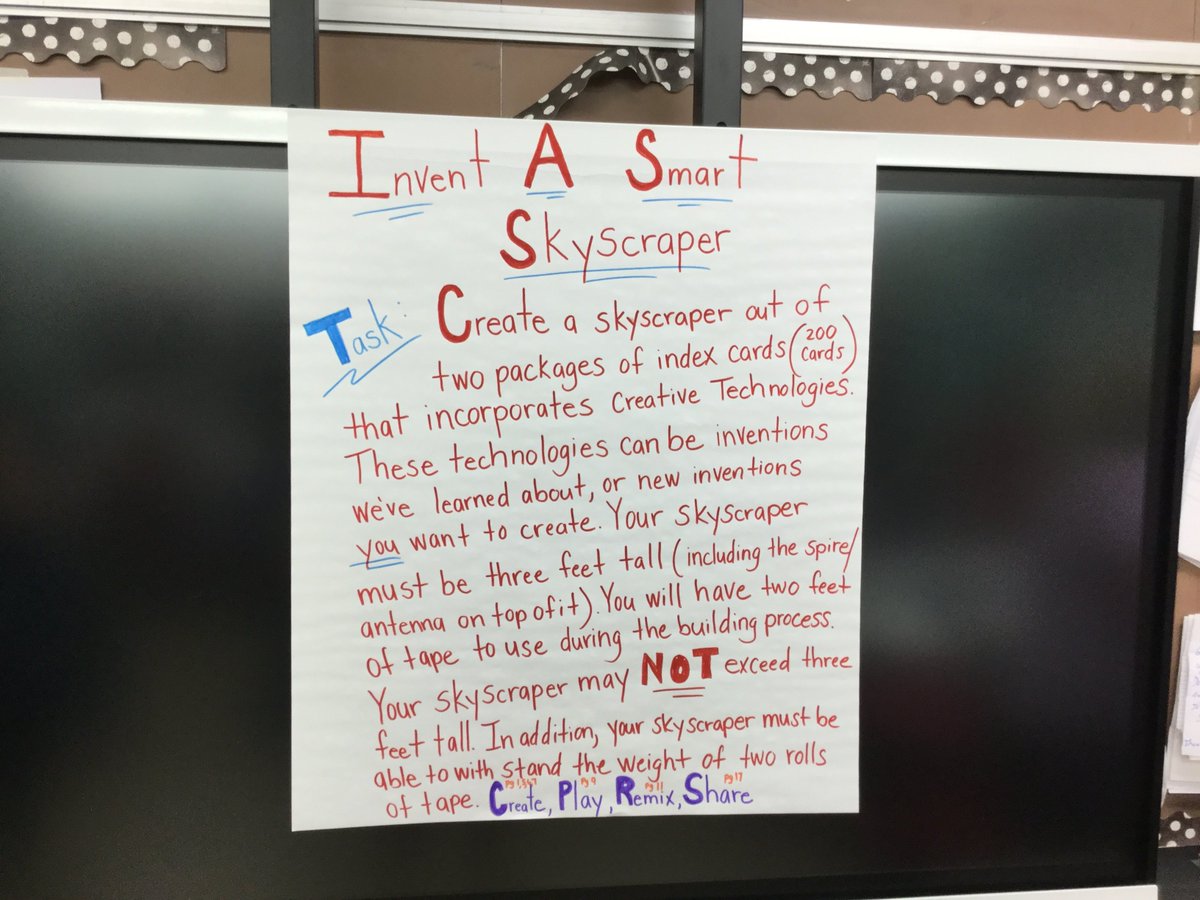 Invent A Smart
Skyscraper
Task: Create a skyscraper out of
two packages of index cards (200 cards)
that incorporates Creative Technologies.
These technologies can be inventions
we've learned about, or new inventions
you want to create. Your skyscraper
must be three feet tall (including the spire/
antenna on top of it). You will have two feet
of tape to use during the building process.
Your skyscraper may NOT exceed three
feet tall. In addition, your skyscraper must be
able to with stand the weight of two rolls
of tape. Create, Play, Remix, Share
Pg 9 Pg 11 Pg 17